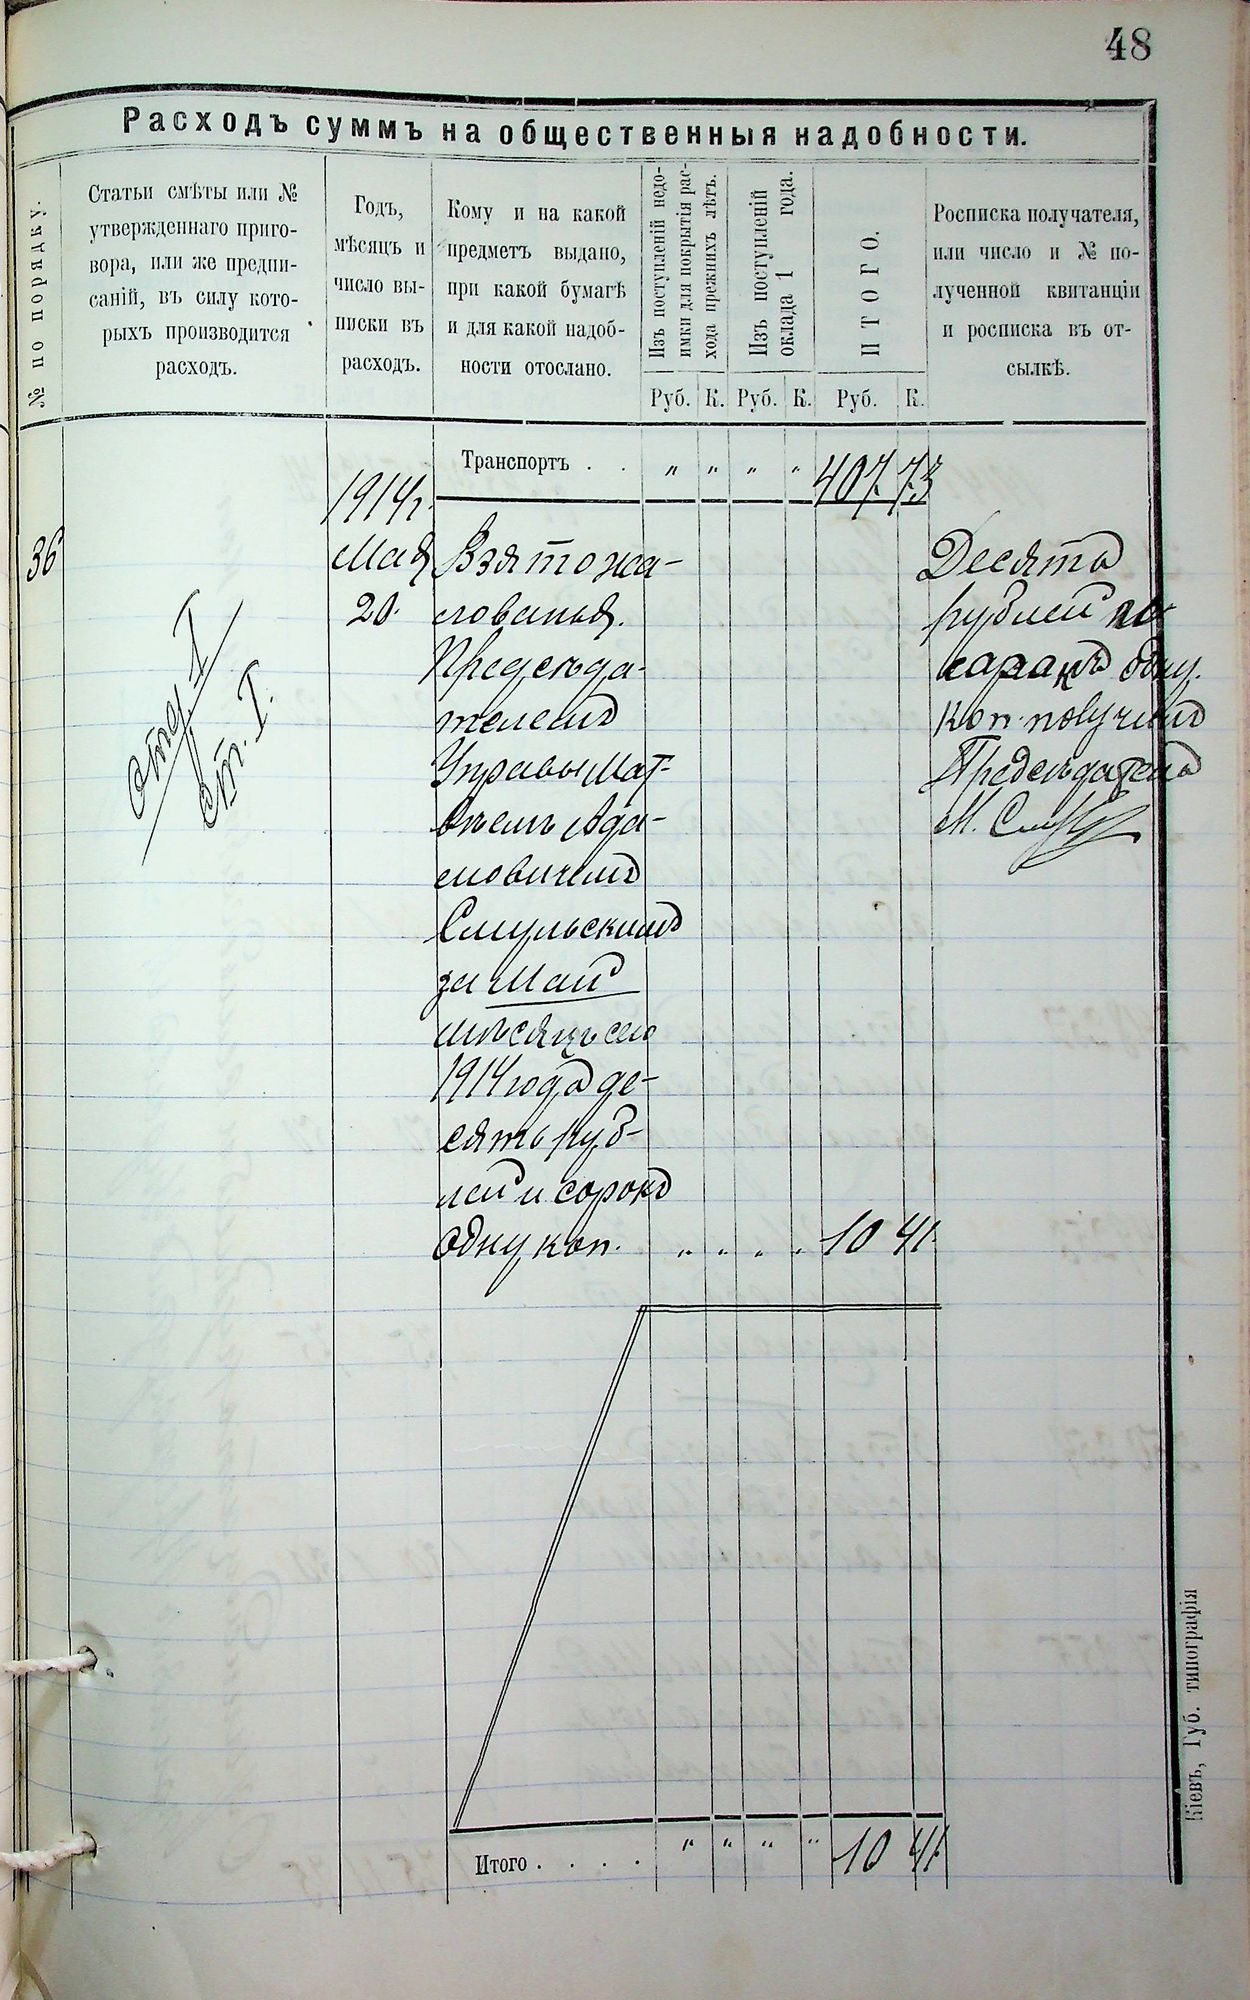 48
Расходъ суммъ на общественныя надобности.
№ по порядку.
Статьи смѣты или №
утвержденнаго приго-
вора, или же предпи-
саній, въ силу кото-
рыхъ производится
расходъ.
Годъ,
мѣсяцъ и
число вы-
писки въ
расходъ.
Кому и на какой
предметъ выдано,
при какой бумагѣ
и для какой надоб-
ности отослано.
Изъ поступленій недо-
имки для покрытія рас-
хода прежнихъ лѣтъ.
Изъ поступленій
оклада 1 года.
ИТОГО.
Росписка получателя,
или число и № по-
лученной квитанціи
и росписка въ от-
сылкѣ.
Руб. К. Руб. К. Руб. К.
Транспортъ . . " " " " 407. 73
1914 г.
36
Мая
20.
отд. I
ст. I.
Взято жа-
лованья.
Предсѣда-
телемъ
Управы Мат-
вѣемъ Ада-
мовичемъ
Смульскимъ
за Май
мѣсяцъ сего
1914 года де-
сять руб-
лей и сорокъ
одну коп. " " " " 10 41.
Десять
рублей
сорокъ одну.
коп. получилъ
Предсѣдатель
М.
Итого . . . . " " " " 10 41.
Кіевъ, Губ. типографія